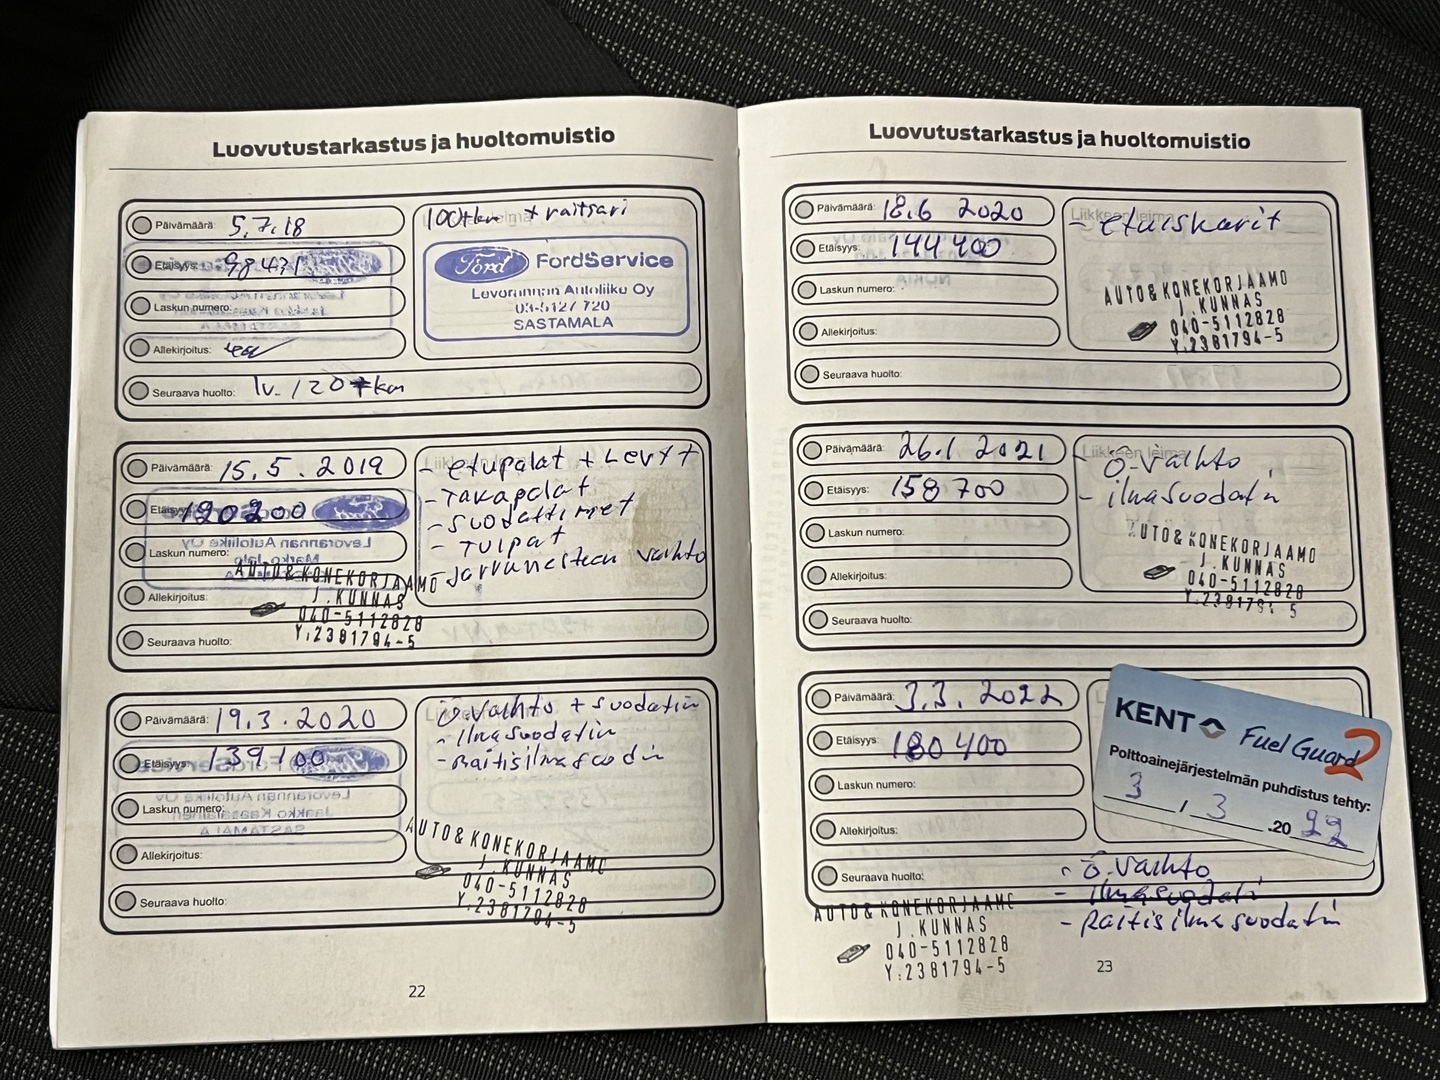 Luovutustarkastus ja huoltomuistio
Päivämäärä: 5.7.18
Etäisyys: 98431
Laskun numero:
Allekirjoitus:
Seuraava huolto: 1v. / 20tkm
100tkm + raitsari
Ford FordService
Levorannan Autoliike Oy
03-5127 720
SASTAMALA
Päivämäärä: 15.5.2019
Etäisyys: 120200
Laskun numero:
Allekirjoitus:
Seuraava huolto:
- etupalat + Levyt
- Takapalat
- suodattimet
- Tulpat
- Jarrunesteen vaihto
AUTO & KONEKORJAAMO
J. KUNNAS
040-5112828
Y:2381794-5
Päivämäärä: 19.3.2020
Etäisyys: 139100
Laskun numero:
Allekirjoitus:
Seuraava huolto:
ö.vaihto + suodatin
- ilmasuodatin
- Raitisilmasuodin
AUTO & KONEKORJAAMO
J. KUNNAS
040-5112828
Y:2381794-5
22
Luovutustarkastus ja huoltomuistio
Päivämäärä: 18.6 2020
Etäisyys: 144400
Laskun numero:
Allekirjoitus:
Seuraava huolto:
Liikkeen leima
- etuiskarit
AUTO & KONEKORJAAMO
J. KUNNAS
040-5112828
Y:2381794-5
Päivämäärä: 26.1 2021
Etäisyys: 158 700
Laskun numero:
Allekirjoitus:
Seuraava huolto:
Liikkeen leima
- ö-vaihto
- ilmasuodatin
AUTO & KONEKORJAAMO
J. KUNNAS
040-5112828
Y:2381794-5
Päivämäärä: 3.3.2022
Etäisyys: 180400
Laskun numero:
Allekirjoitus:
Seuraava huolto:
KENT Fuel Guard 2
Polttoainejärjestelmän puhdistus tehty:
3 / 3 .20 22
- ö.vaihto
- ilmasuodatin
- Raitisilmasuodatin
AUTO & KONEKORJAAMO
J. KUNNAS
040-5112828
Y:2381794-5
23